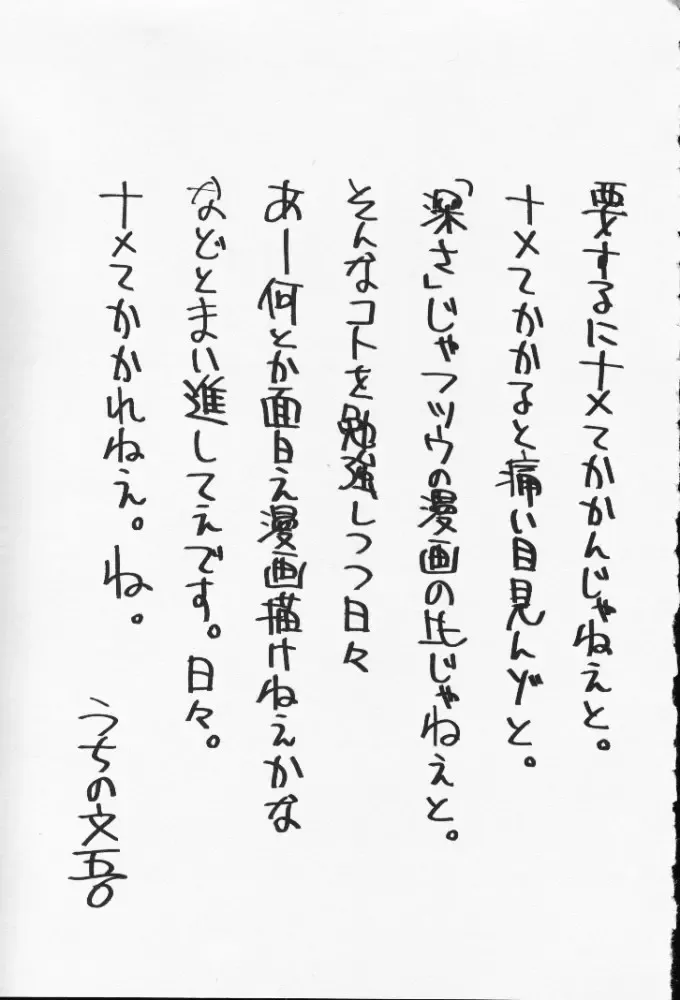 要するにナメてかかんじゃねえと。
ナメてかかると痛い目見んゾと。
「深さ」じゃフツウの漫画の比じゃねぇと。
そんなコトを勉強しつつ日々
あー何とか面白え漫画描けねぇかな
などとまい進してぇです。日々。
ナメてかかれねぇ。ね。
うちの文吾